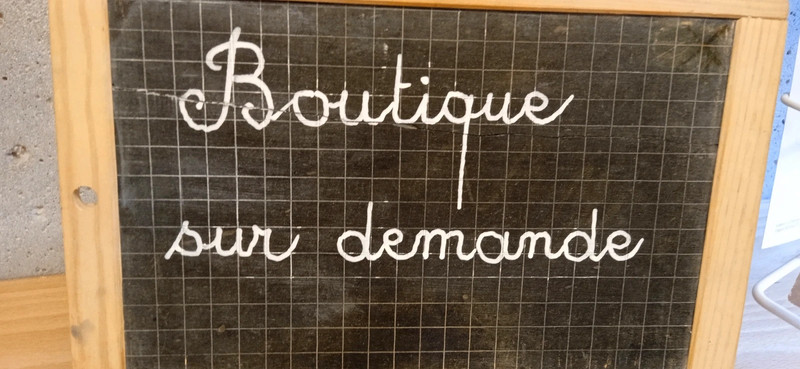 Boutique
sur demande